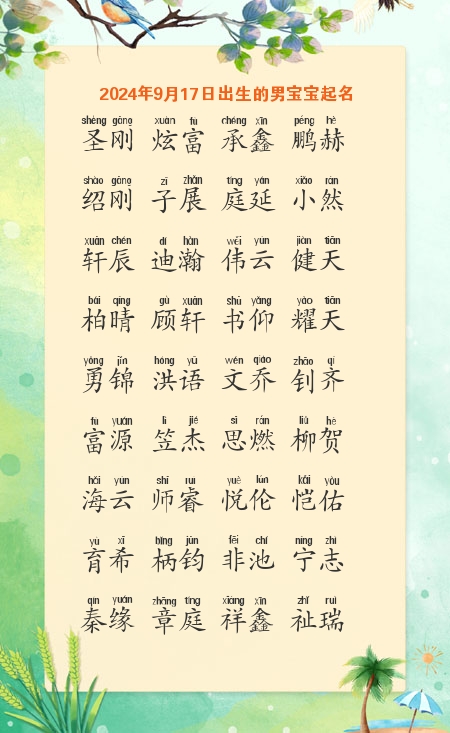 2024年9月17日出生的男宝宝起名
shèng gāng xuàn fù chéng xīn péng hè
圣刚 炫富 承鑫 鹏赫
shào gāng zǐ zhǎn tíng yán xiǎo rán
绍刚 子展 庭延 小然
xuān chén dí hàn wěi yún jiàn tiān
轩辰 迪瀚 伟云 健天
bǎi qíng gù xuān shū yǎng yào tiān
柏晴 顾轩 书仰 耀天
yǒng jǐn hóng yǔ wén qiáo zhāo qí
勇锦 洪语 文乔 钊齐
fù yuán lì jié sī rán liǔ hè
富源 笠杰 思燃 柳贺
hǎi yún shī ruì yuè lún kǎi yòu
海云 师睿 悦伦 恺佑
yù xī bǐng jūn fēi chí níng zhì
育希 柄钧 非池 宁志
qín yuán zhāng tíng xiáng xīn zhǐ ruì
秦缘 章庭 祥鑫 祉瑞